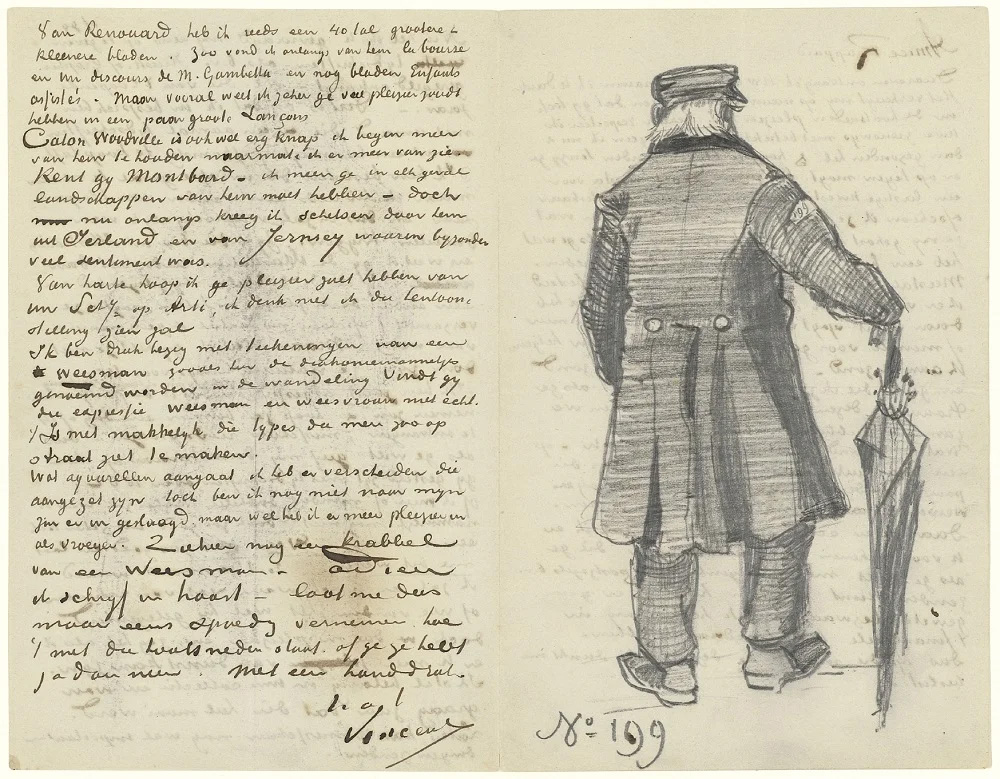 Van Renouard heb ik reeds een 40 tal grootere &
kleinere bladen. Zoo vond ik onlangs van hem la bourse
en un discours de M. Gambetta en nog bladen Enfants
assistés. Maar vooral weet ik zeker ge veel pleizier zoudt
hebben in een paar groote Lançons
Caton Woodville is ook wel erg knap ik begin meer
van hem te houden naarmate ik er meer van zie.
Kent gy Montbard – ik meen ge in elk geval
landschappen van hem moet hebben – doch
nu onlangs kreeg ik schetsen door hem
uit Ierland en van Jersey waarin byzonder
veel sentiment was.
Van harte hoop ik ge pleizier zult hebben van
uw Schy op Arti, ik denk niet ik die tentoon-
stelling zien zal
Ik ben druk bezig met teekeningen van een
weesman zooals hier de diakoniemannetjes
genoemd worden in de wandeling Vindt gy
die expressie weesman en weesvrouw niet echt.
't Is niet makkelyk die types die men zoo op
straat ziet te maken.
Wat aquarellen aangaat ik heb er verscheiden die
aangezet zyn toch ben ik nog niet naar myn
zin er in geslaagd maar wel heb ik er meer pleizier in
als vroeger. Ziehier nog een krabbel
van een Weesman – adieu
ik schryf in haast – laat me dus
maar eens spoedig vernemen hoe
't met die houtsneden staat. of ge ze hebt
ja dan neen. Met een handdruk.
t. à t.
Vincent
199
No 199